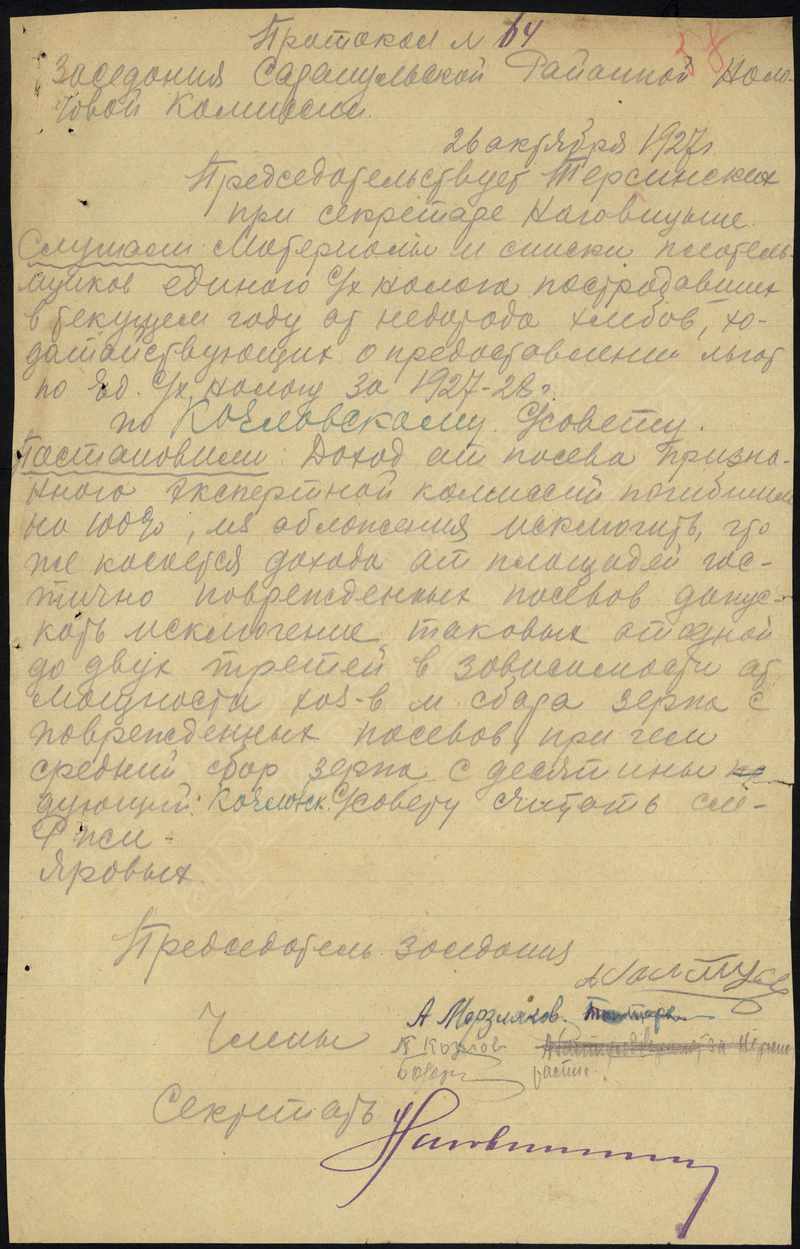 Протокол № 64
58
Заседания Сарапульской Районной Нало-
говой Комиссии.
26 октября 1927 г.
Председательствует Терсинских
при секретаре Наговицыне.
Слушали: Материалы и списки платель-
щиков единого с/х налога пострадавших
в текущем году от недорода хлебов, хо-
датайствующих о предоставлении льгот
по Ед. с/х налогу за 1927-28 г.
по Ссовету.
Постановили: Доход от посева призна-
нного экспертной комиссией погибшим
на 100%, из обложения исключить, что
же касается дохода от площадей час-
тично поврежденных посевов допус-
кать исключение таковых от одной
до двух третей в зависимости от
мощности хоз-в и сбора зерна с
поврежденных посевов, при чем
средний сбор зерна с десятины
дующий: Ссовету считать сле-
Ржи -
Яровых
Председатель заседания
Члены
А Мерзляков.
Козлов
Секретарь